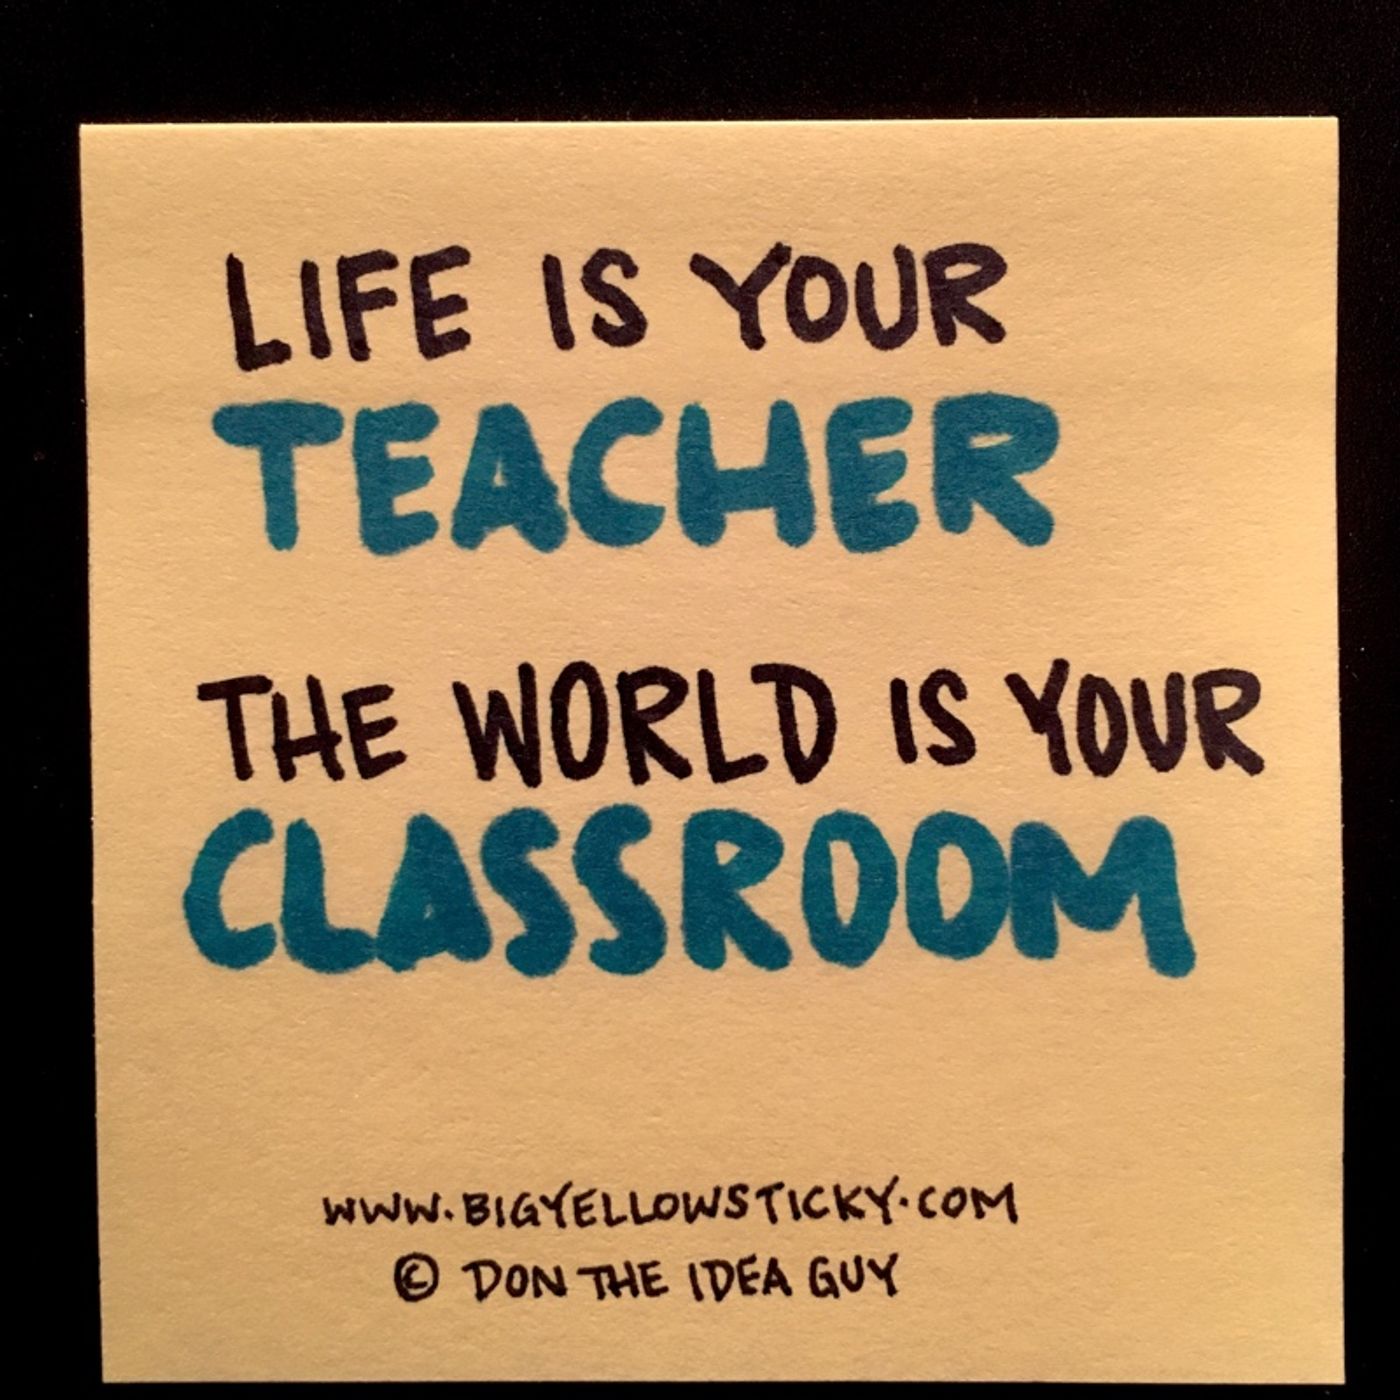 LIFE IS YOUR
TEACHER
THE WORLD IS YOUR
CLASSROOM
WWW.BIGYELLOWSTICKY.COM
© DON THE IDEA GUY